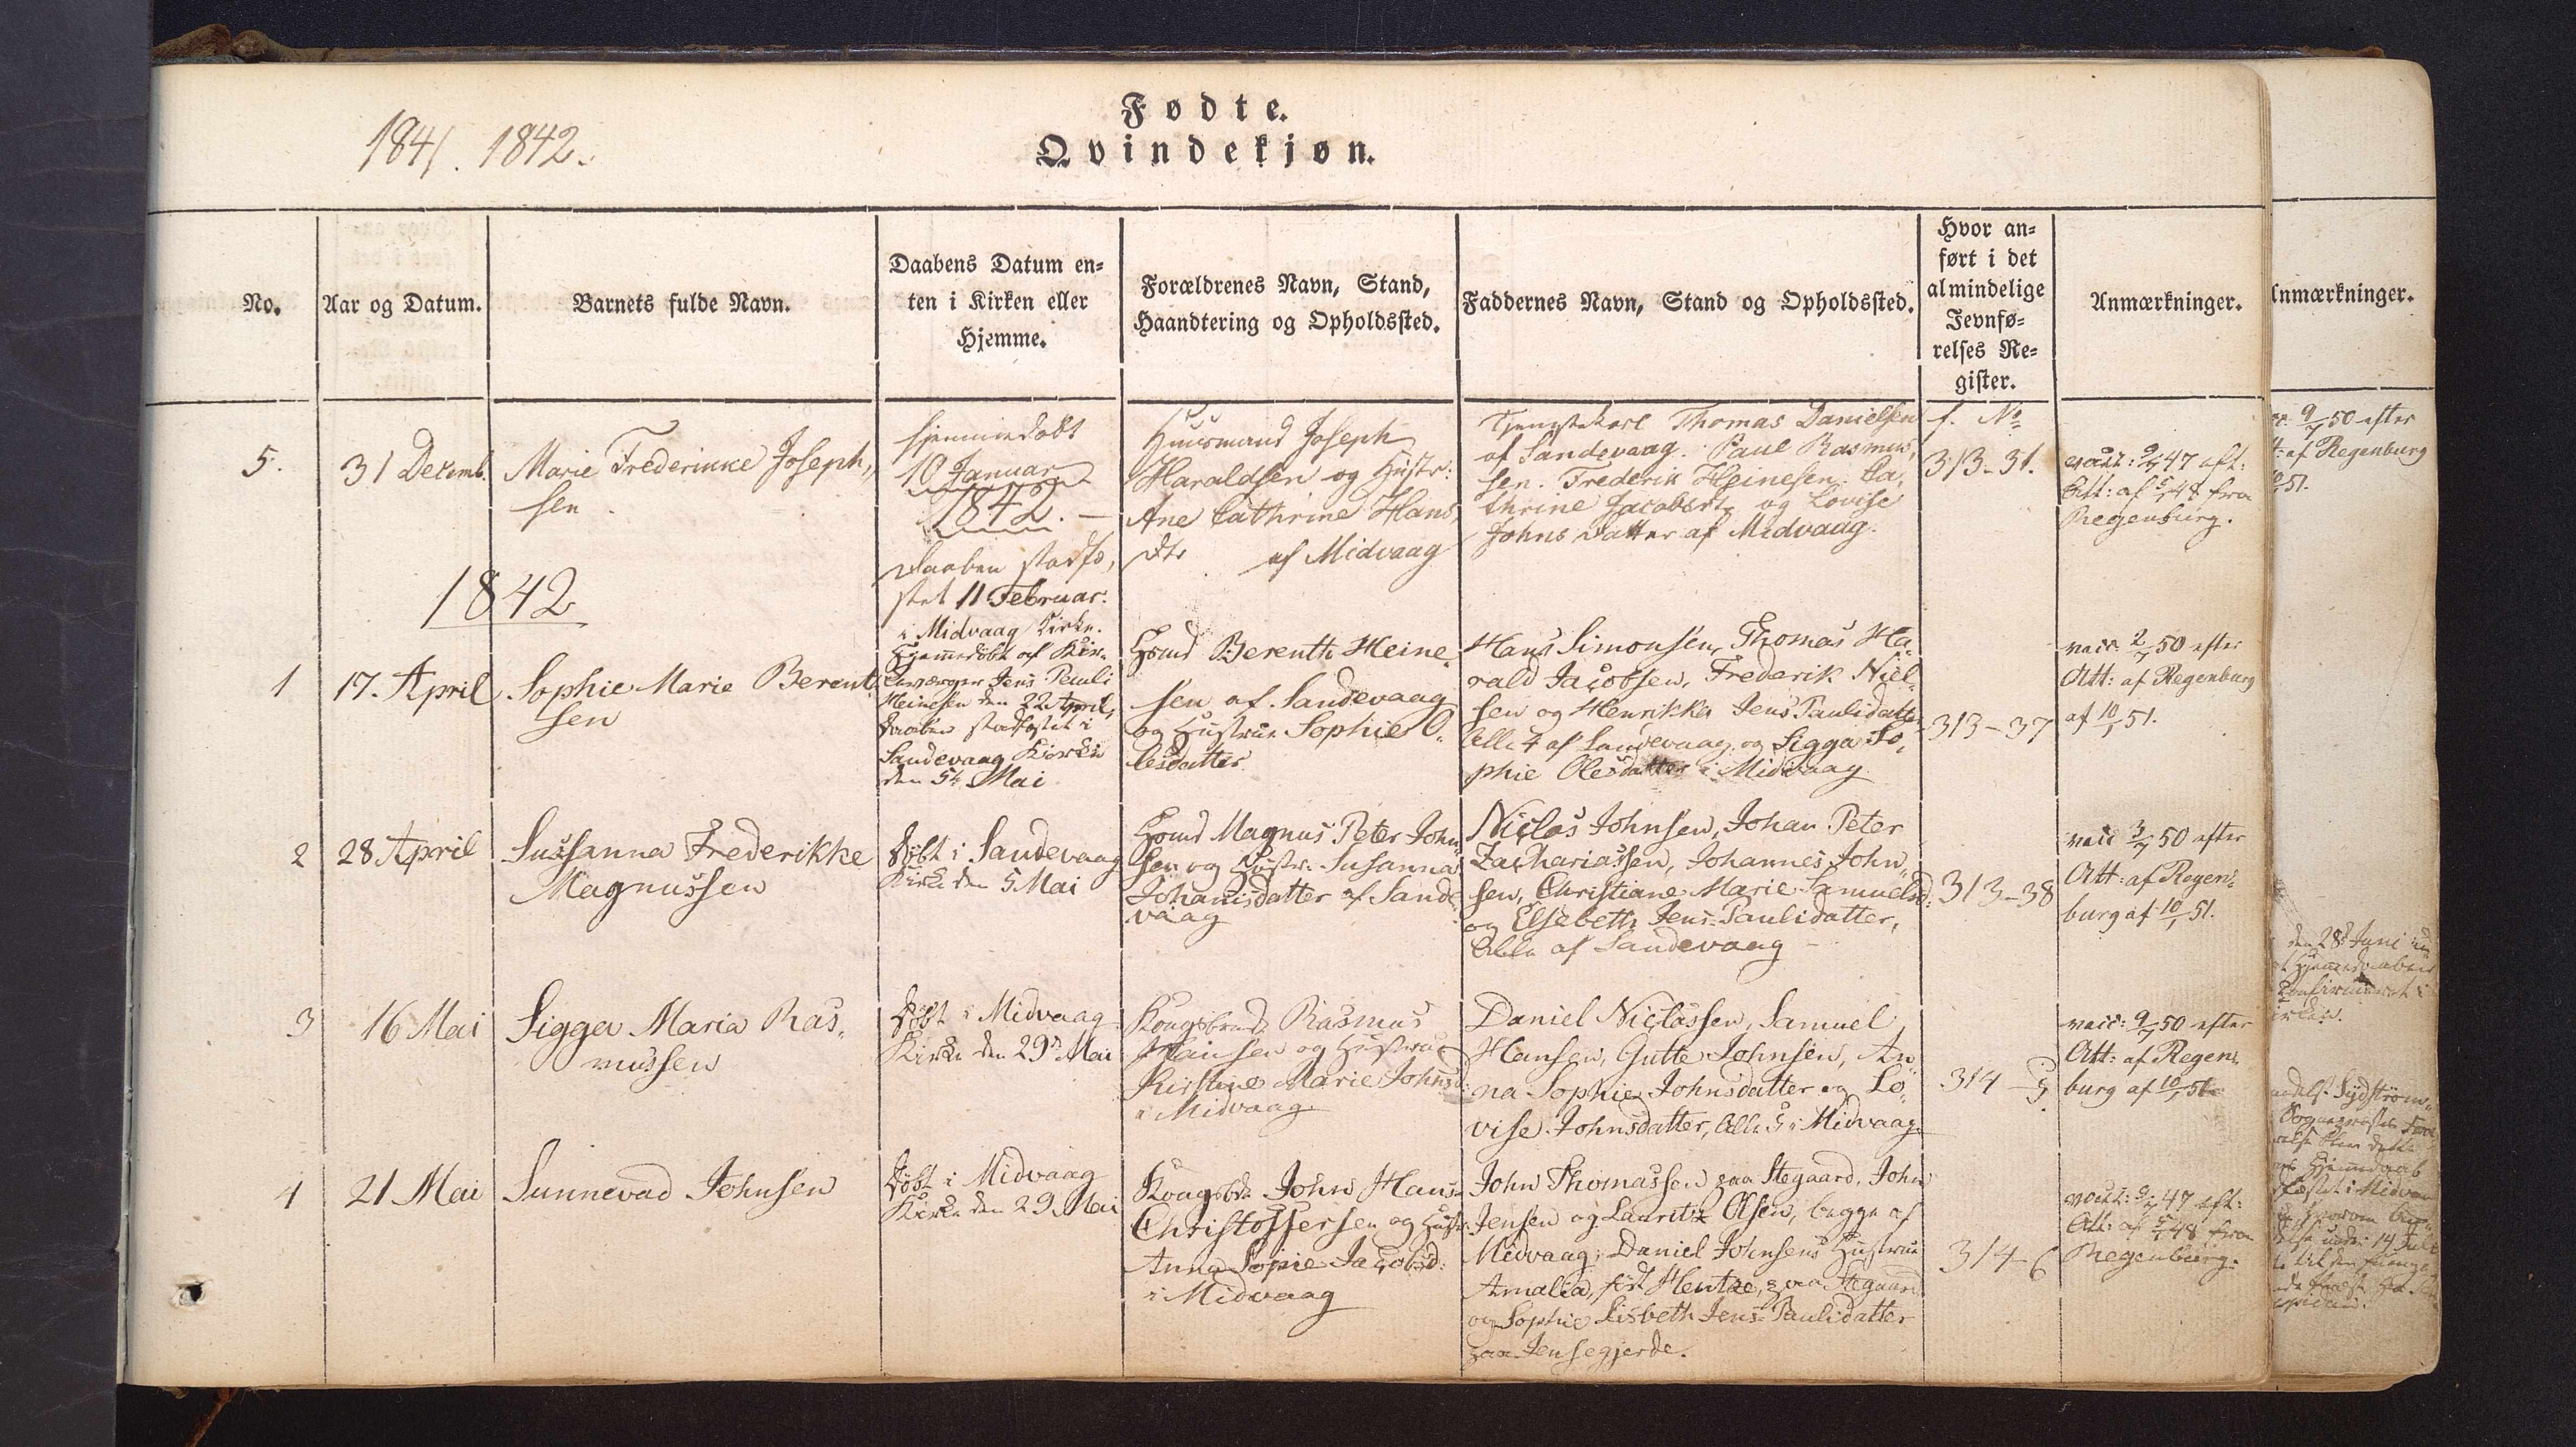 1841. 1842.
Fødte.
Qvindekjøn.
No.
Aar og Datum.
Barnets fulde Navn.
Daabens Datum en-
ten i Kirken eller
Hjemme.
Forældrenes Navn, Stand,
Haandtering og Opholdssted.
Faddernes Navn, Stand og Opholdssted.
Hvor an-
ført i det
almindelige
Jevnfø-
relses Re-
gister.
Anmærkninger.
5.
31 Decemb.
Marie Frederikke Joseph,
sen
hjemmedøbt
10 Januar
1842. -
Daaben stadfæ,
stet 11 Februar.
i Midvaag Kirke.
Huusmand Joseph
Haraldsen og Hustr:
Ane Cathrine Hans,
dtr af Midvaag
Tjenestekarl Thomas Danielsen
af Sandevaag. Paul Rasmus,
sen. Frederik Heinesen. Ca,
thrine Jacobsdt. og Lovise
Johns datter af Midvaag.
f. No
313-31.
vacc: 9/7 47 eft:
Att: af 5/1 48 fra
Regenburg.
1842
1
17. April
Sophie Marie Berent
sen
Hjemmedøbt af Kir-
keværger Jens Pauli
Heinesen den 22 April,
Daaben stadfæstet i
Sandevaag Kirke
den 5te Mai
Hmd Berenth Heine-
sen af Sandevaag
og Hustrue Sophie O-
lesdatter
Hans Simonsen, Thomas Ha-
rald Jacobsen, Frederik Niel-
sen og Henrikke Jens Paulidatter
Alle 4 af Sandevaag og Sigga So,
phie Olesdatter i Midvaag
313-37
vacc: 2/7 50 efter
Att: af Regenburg
af 10/1 51.
2
28 April
Sussanna Frederikke
Magnussen
Døbt i Sandevaag
Kirke den 5 Mai
Hmd Magnus Peter John-
sen og Hustr. Susanna
Johannisdatter af Sande
vaag
Niclas Johnsen, Johan Peter
Zachariassen, Johannes John-
sen, Christiane Marie Samuelsd:
og Elsebeth Jens-Paulidatter,
Alle af Sandevaag -
313-38
vacc 3/7 50 efter
Att: af Regen-
burg af 10/1 51.
3
16 Mai
Sigga Maria Ras-
mussen
Døbt i Midvaag
Kirke den 29de Mai
Kongsbonde Rasmus
Hansen og Hustrue
Kirstine Marie Johnsd:
i Midvaag
Daniel Niclassen, Samuel
Hansen, Gutte Johnsen, An-
na Sophie Johnsdatter og Lo-
vise Johnsdatter, Alle 5 i Midvaag.
314-5
vacc: 9/7 50 efter
Att: af Regen-
burg af 10/1 51
4
21 Mai
Sunnevad Johnsen
Døbt i Midvaag
Kirke den 29 Mai
Kongsbde John Hans-
Christoffersen og Hustr:
Anna Sopie Jacobsd:
i Midvaag
John Thomassen paa Stegaard, John
Jensen og Lauritz Olsen, begge af
Midvaag; Daniel Johnsens Hustrue
Amalia, født Hentze, paa Stegaard
og Sophie Lisbeth Jens-Paulidatter
paa Jensegjerde.
314-6
vacc: 9/7 47 eft:
Att: af 5/1 48 fra
Regenburg.
Anmærkninger.
9/7 50 efter
af Regenburg
51.
den 28de Juni